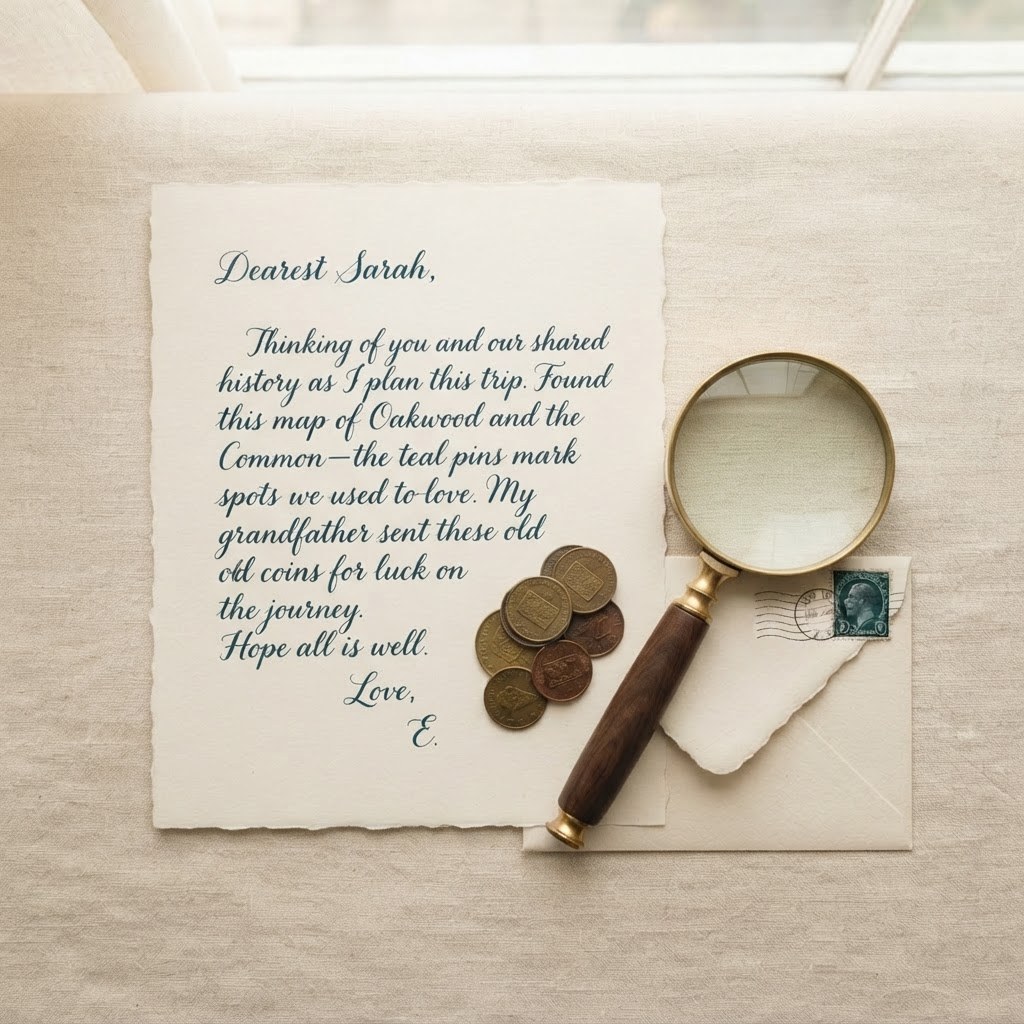 Dearest Sarah,
Thinking of you and our shared
history as I plan this trip. Found
this map of Oakwood and the
Common—the teal pins mark
spots we used to love. My
grandfather sent these old
old coins for luck on
the journey.
Hope all is well.
Love,
E.